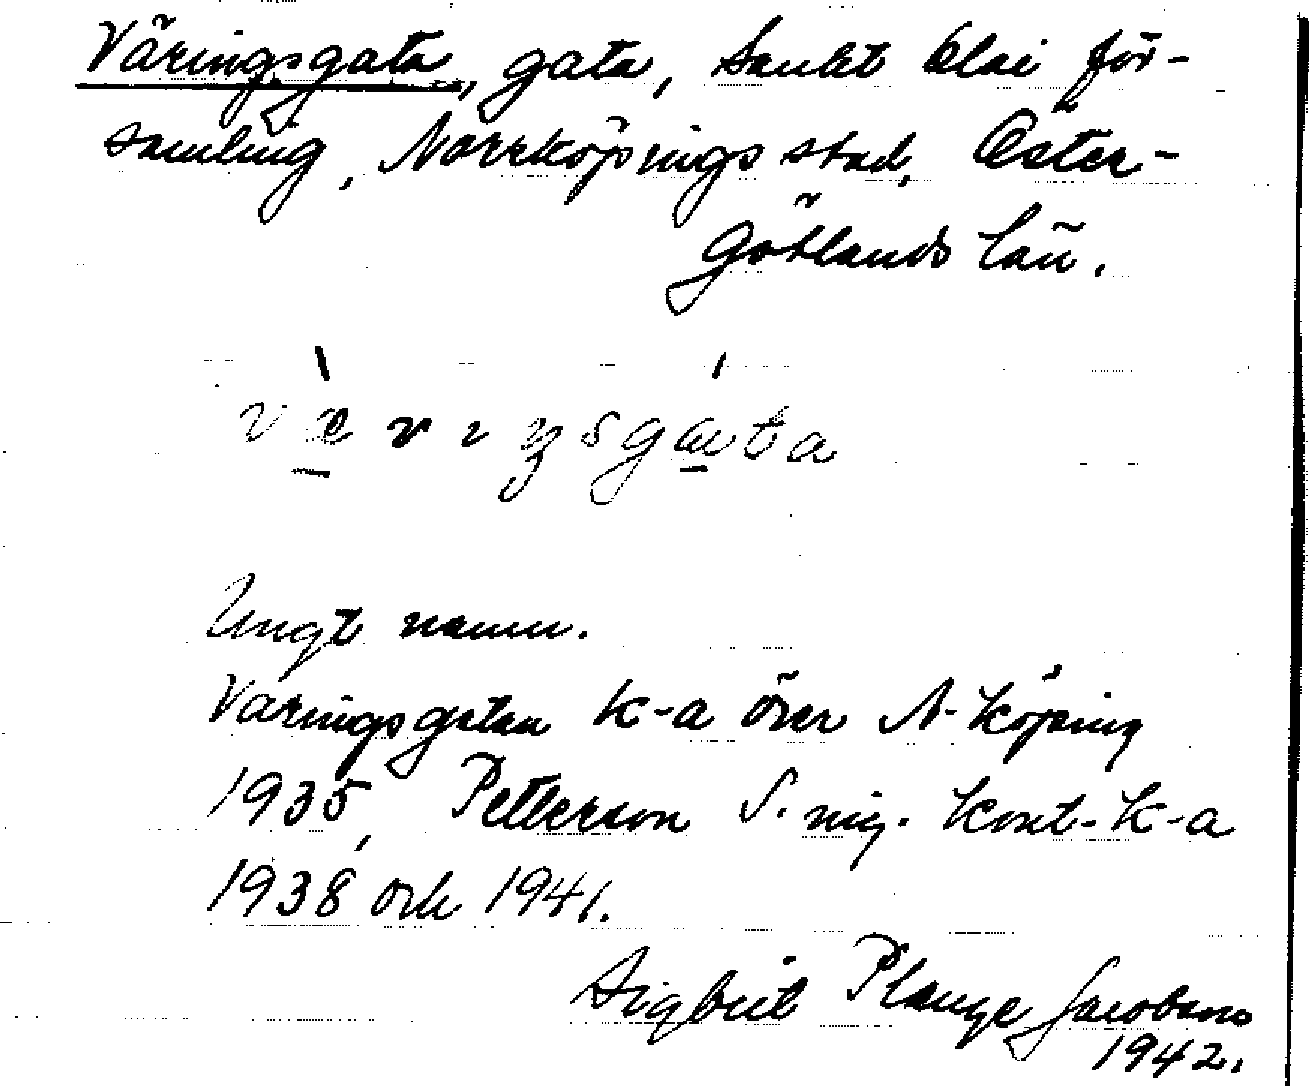 Väringsgata, gata, Sankt Olai för-
samling, Norrköpings stad, Öster-
götlands län.
væ̀rıŋsgáta
Ungt namn.
Väringsgatan K-a över N-köping
1935, Petterson S. nig. Kont-K-a
1938 och 1941.
Sigbrit Plange Jacobson
1942.